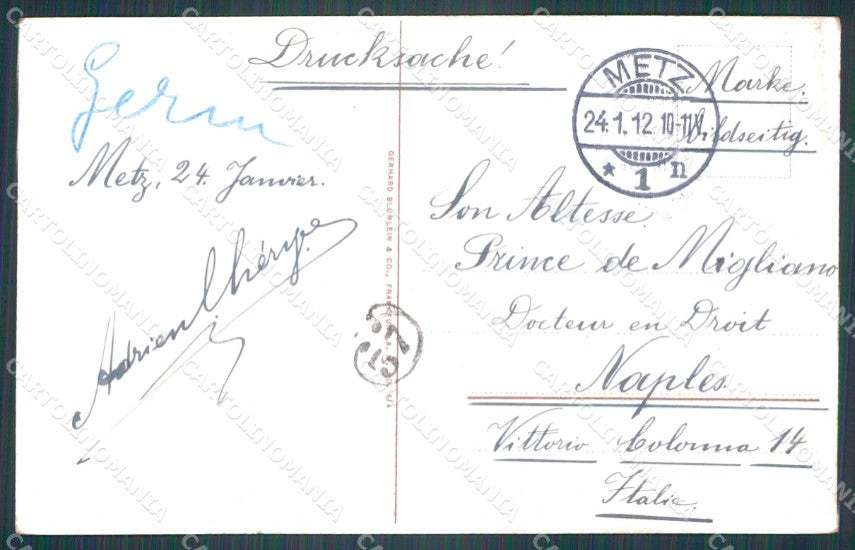 Drucksache!
Germ
Metz, 24. Janvier.
Adrien
METZ
24.1.12.10-11V
* 1 n
Marke
bildseitig.
Son Altesse
Prince de Migliano
Docteur en Droit
Naples.
Vittorio Colonna 14
Italie.
GERHARD BLÜMLEIN & CO., FRANKFURT A.
CARTOLINOMANIA